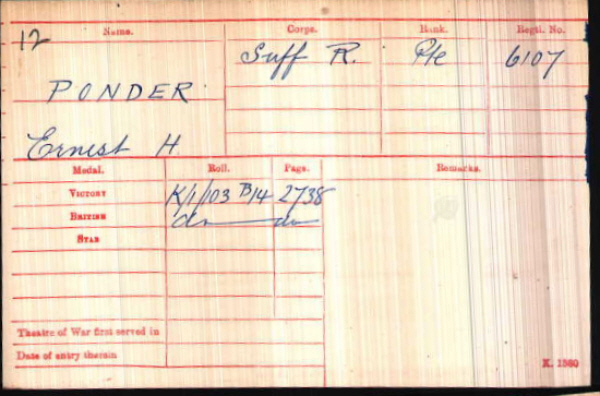 12 Name. Corps. Rank. Regtl. No.
Suff R. Pte 6107
PONDER
Ernest H.
Medal. Roll. Page. Remarks.
VICTORY K/1/103 B14 2738
BRITISH do do
STAR
Theatre of War first served in
Date of entry therein
K. 1380